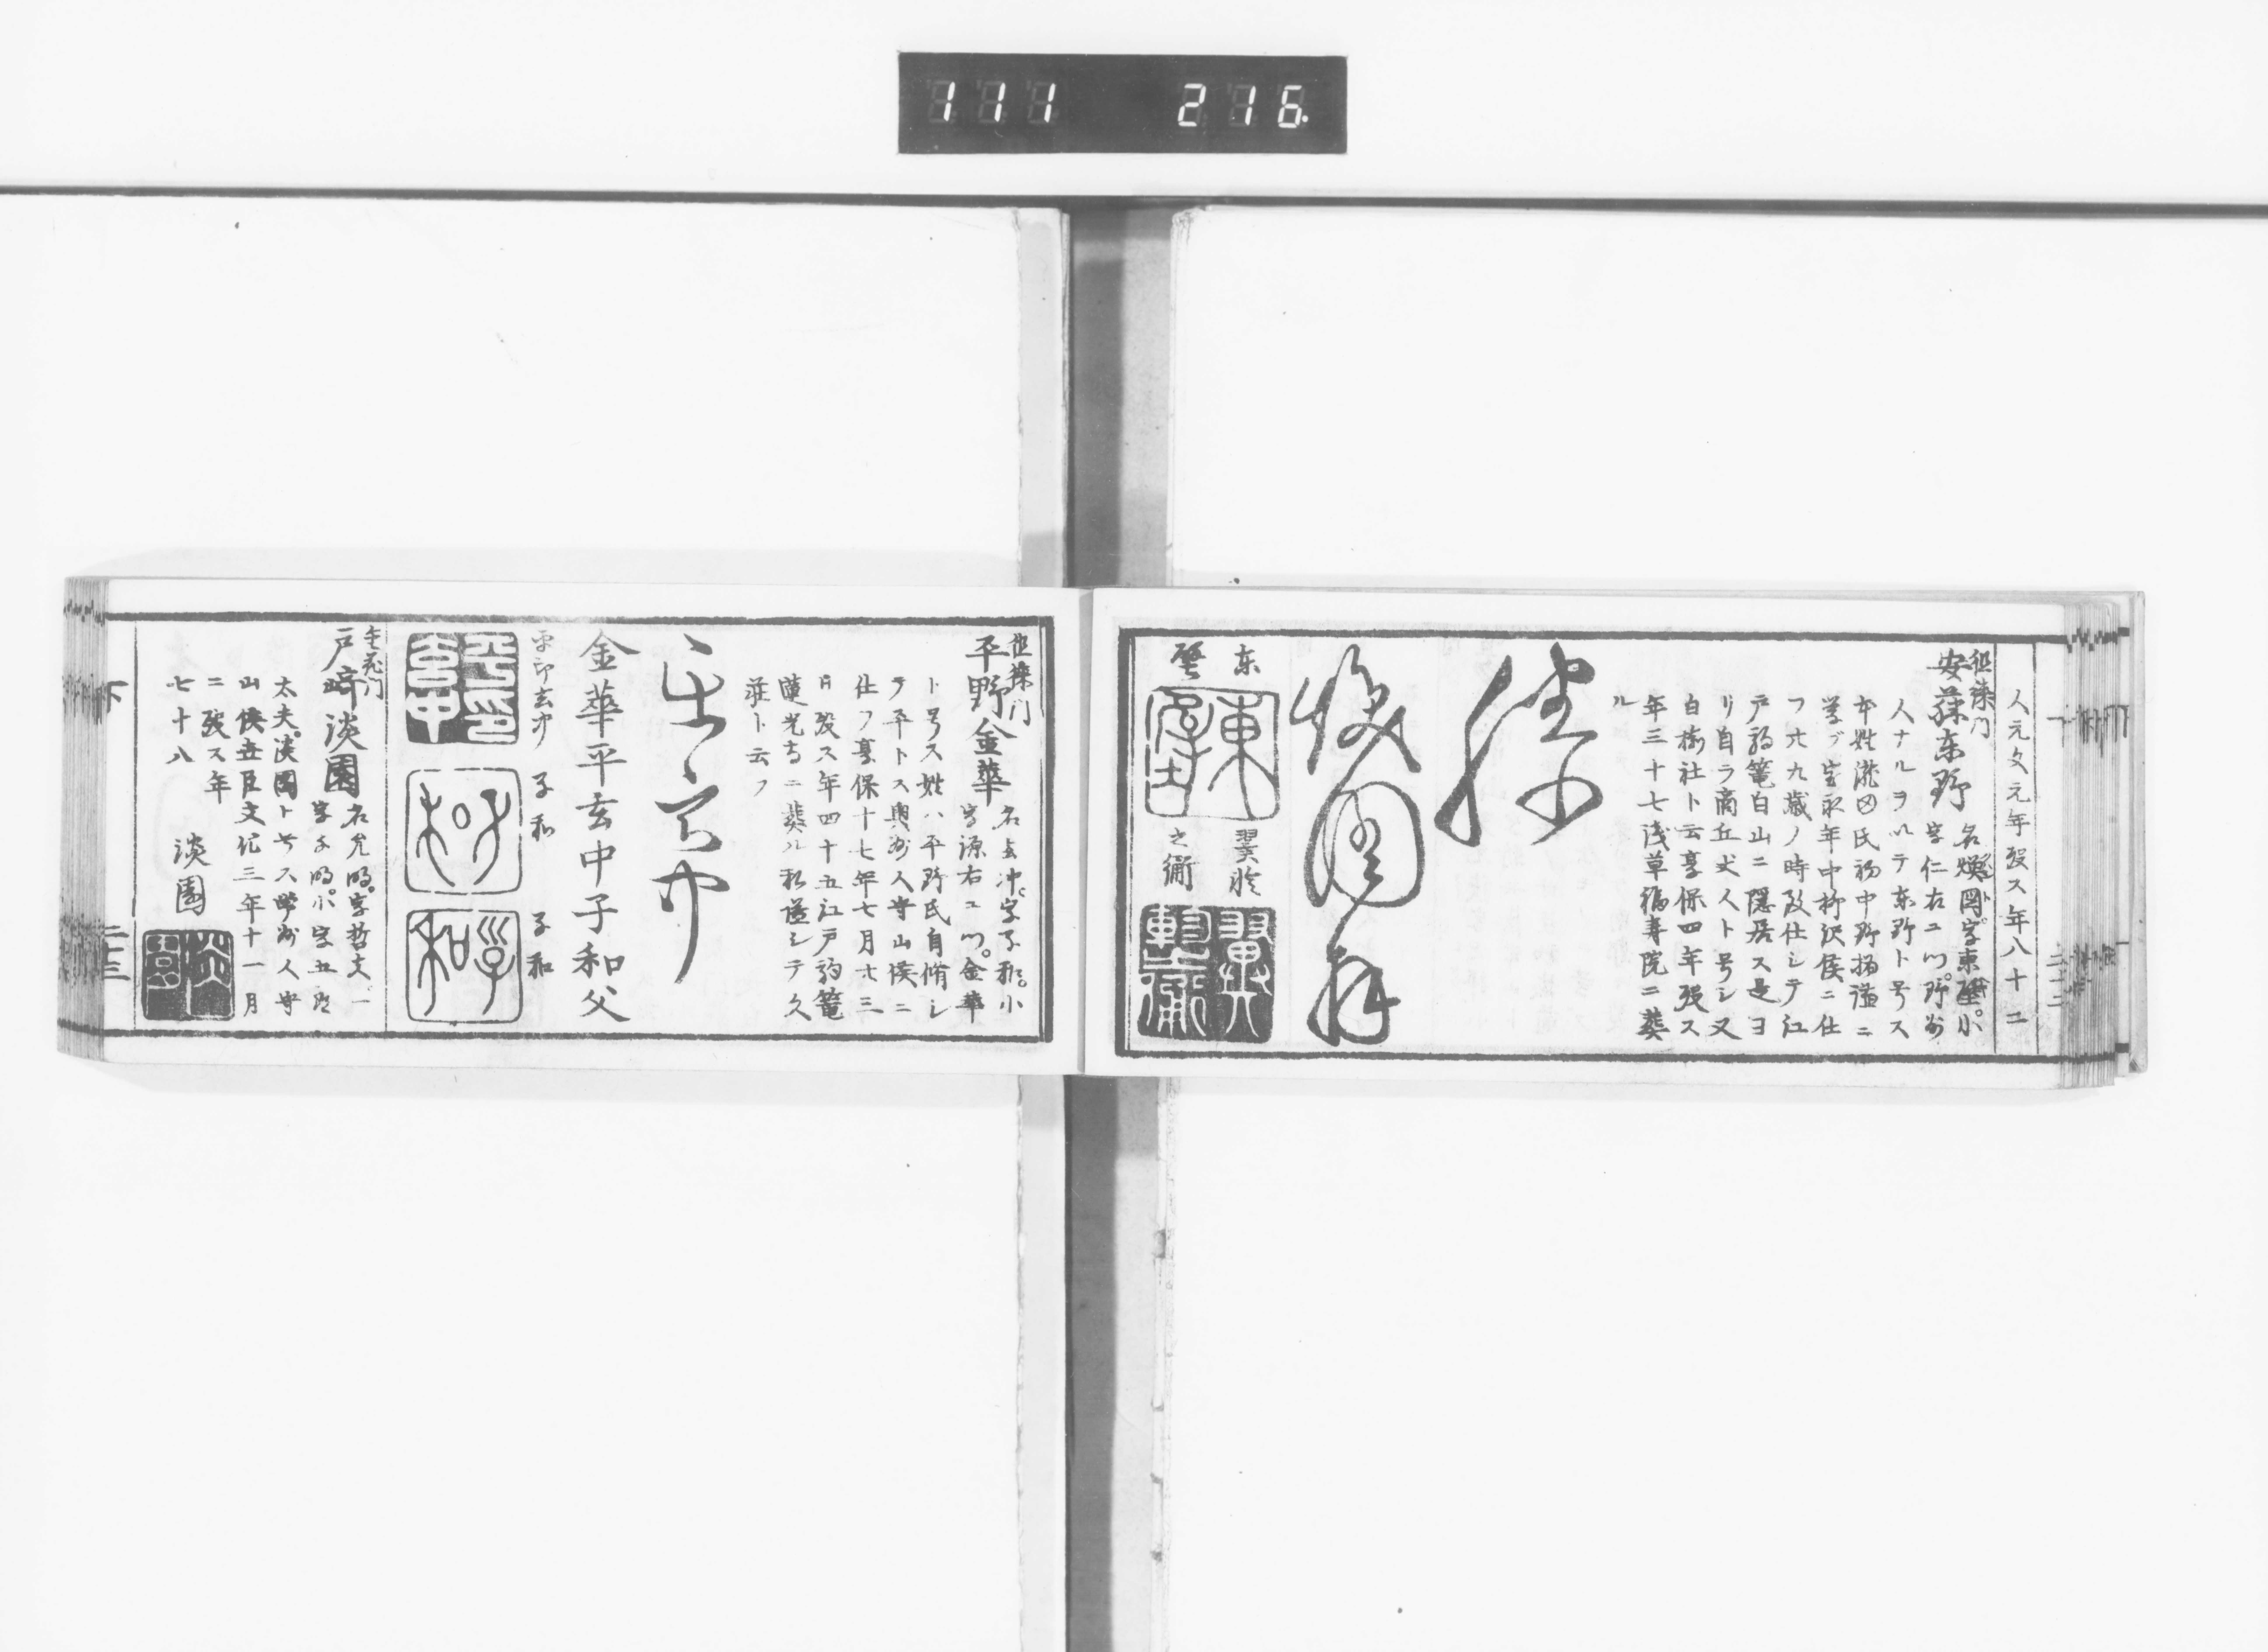 111 216.
人元文元年歿ス年八十二
徂徠門
安藤东野
名煥圖字東壁小
字仁右ヱ门野州
人ナルヲ以テ东野ト号ス
本姓滝田氏初中野撝謙ニ
学ブ宝永年中柳沢侯ニ仕
フ廿九歳ノ時致仕シテ江
戸駒篭白山ニ隠居ス是ヨ
リ自ラ商丘丈人ト号シ又
白樹社ト云享保四年歿ス
年三十七浅草福寿院ニ葬
ル
滕
煥圖
东
壁
東壁
之衞
徂徠门
平野金華
名玄冲字子和小
字源右ヱ门金華
ト号ス姓ハ平野氏自脩シ
テ平トス奥州人守山侯ニ
仕フ享保十七年七月廿三
日歿ス年四十五江戸駒篭
蓮光寺ニ葬ル私謚シテ久
荘ト云フ
金華平玄中子和父
平印玄中
子和
子和
戸崎淡園
名允明字哲夫一
字子明小字五郎
太夫淡園ト号ス常州人守
山侯世臣文化三年十一月
ニ歿ス年
七十八
淡園
下
二十三